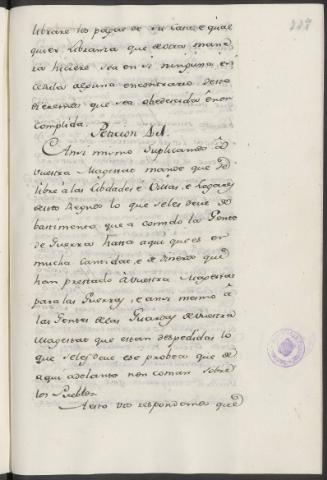 librare los pagas de su Casa, e qual
quier Libranza que de otra mane
ra hiciere sea en si ninguna, e n
cedula alguna en contrario desto
dieremos que sea obedecida e non
complida.
Peticion
Otrosi mismo Suplicamos á
Vuestra Magestad mande que
libre á las Cibdades, é Villas, é Logares
destos Regnos lo que seles deve de
bastimento que a comido la Gente
de Guerra hasta aqui que es en
mucha cantidad, e de dineros que
han prestado á Vuestra Magestad
para las Guerras, e ansi mismo á
las Gentes de las Guardas de Vuestra
Magestad que estan despedidas lo
que seles deve e se probea que de
aqui adelante non coman sobre
los Pueblos.
A esto vos respondemos que